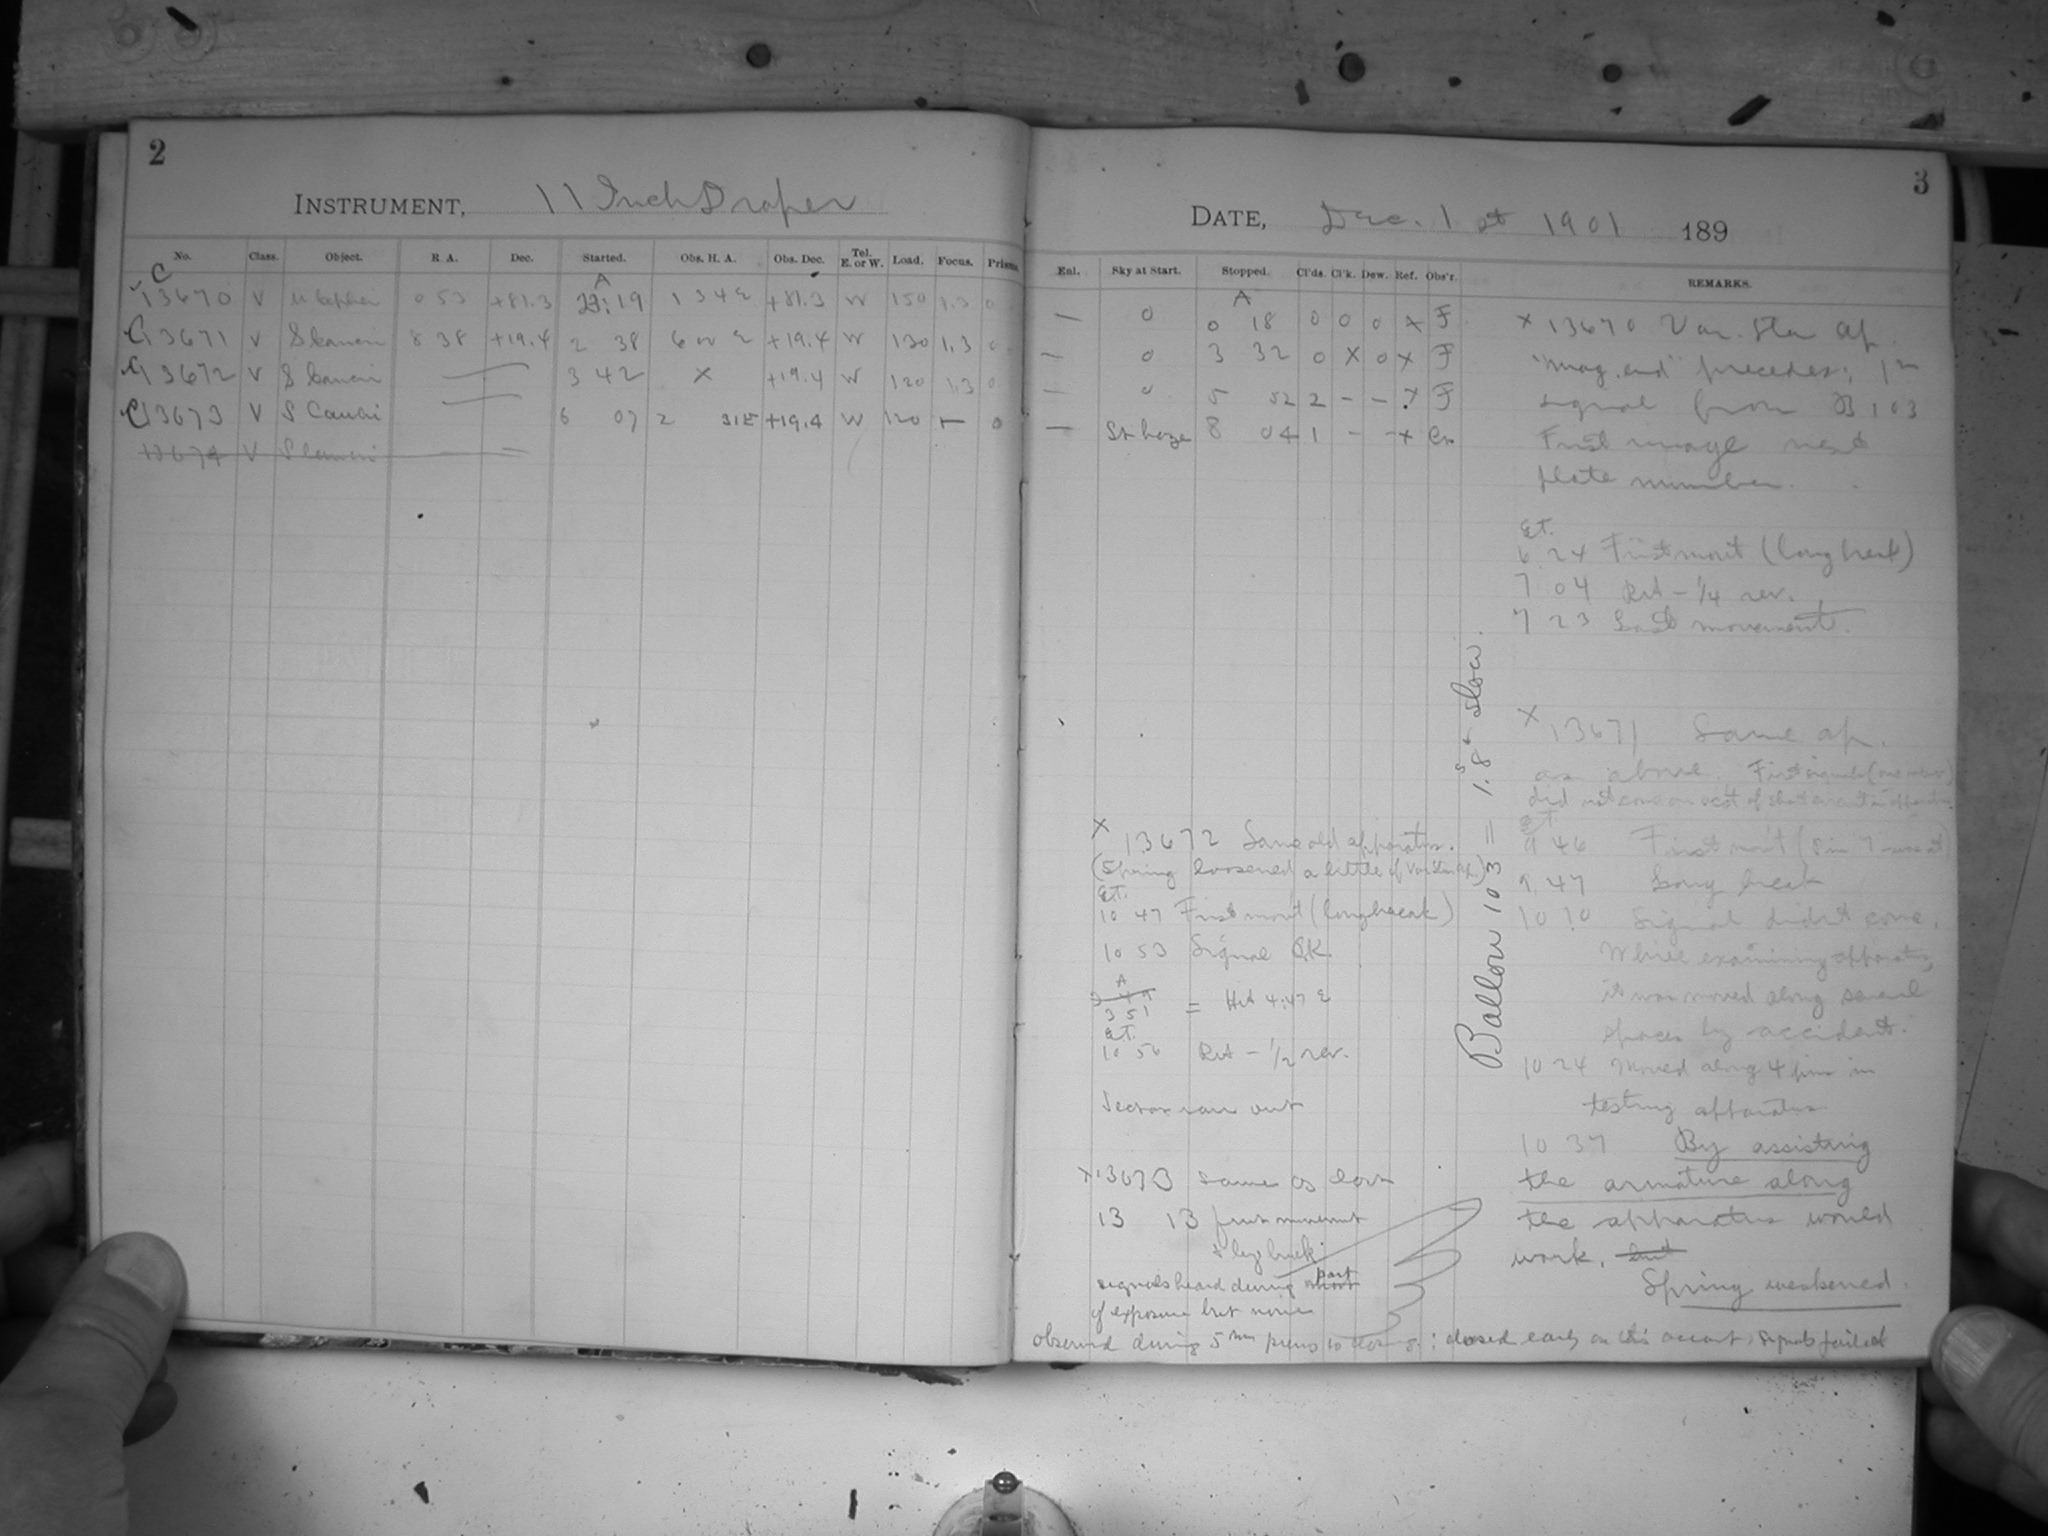 2
INSTRUMENT, 11 Inch Draper
No. Class. Object. R. A. Dec. Started. Obs. H. A. Obs. Dec. Tel. E. or W. Load. Focus. Prisms.
A
C 13670 V U Cephei 0 53 +81.3 23:19 1 34 E +81.3 W 150 1.3 0
C 13671 V S Cancri 8 38 +19.4 2 38 6 E +19.4 W 130 1.3 0
C 13672 V S Cancri 3 42 X +19.4 W 120 1.3 0
C 13673 V S Cancri 6 07 2 31E +19.4 W 120 – 0
13674 V S Cancri
3
DATE, Dec. 1st 1901 189
Enl. Sky at Start. Stopped. Cl'ds. Cl'k. Dew. Ref. Obs'r. REMARKS.
A
— 0 0 18 0 0 0 X F
— 0 3 32 0 X 0 X F
— 0 5 52 2 – – X F
— St haze 8 04 1 – – X
X 13670 Var. Star ap.
"mag. end" precedes; 1st
signal from B 103
First image next
plate number.
E.T.
6 24 First mov't (long break)
7 04 Ret – 1/4 rev.
7 23 Last movement.
Ballou 103 = 1.8s slow.
X 13671 Same ap.
as above. First signal
did not come on acct of short circuit in apparatus
E.T.
9 46 First mov't
9 47 Long break
10 10 Signal didn't come.
While examining apparatus
it was moved along several
spaces by accident.
10 24 Moved along 4 pins in
testing apparatus
10 37 By assisting
the armature along
the apparatus would
work, but
Spring weakened.
X 13672 Same old apparatus.
(Spring loosened a little of Var Star Ap.)
E.T.
10 47 First mov't (long break)
10 53 Signal O.K.
A
3 49
3 51 = HA 4:47 E
E.T.
10 56 Ret – 1/2 rev.
Sector ran out
X 13673 same as
13 13 first movement
signals heard during most part
of exposure but none
observed during 5 min previous to closing; closed early on this account, signals failed